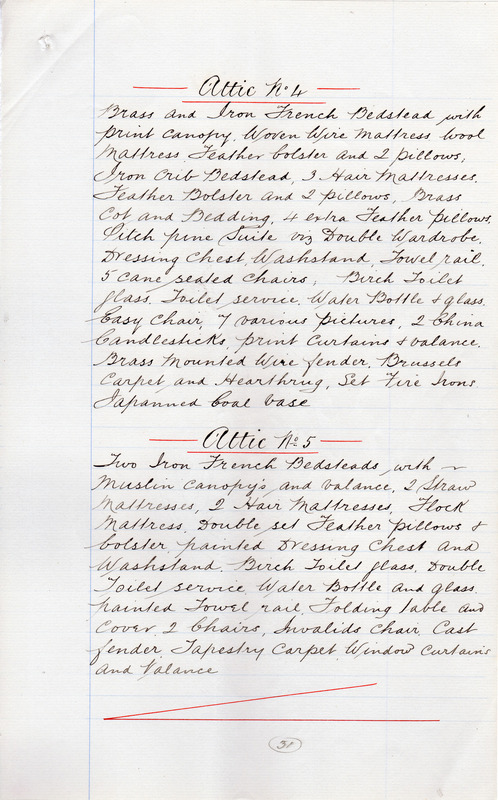 Attic No 4
Brass and Iron French Bedstead with
print canopy. Woven Wire Mattress Wool
Mattress Feather bolster and 2 pillows,
Iron Crib Bedstead, 3 Hair Mattresses.
Feather Bolster and 2 pillows, Brass
Cot and Bedding, 4 extra Feather pillows.
Pitch pine Suite viz Double Wardrobe.
Dressing Chest, Washstand, Towel rail.
5 cane seated chairs, Birch Toilet
glass. Toilet service. Water Bottle & glass.
Easy Chair, 7 various pictures, 2 China
Candlesticks, print Curtains & valance.
Brass Mounted Wire fender, Brussels
Carpet and Hearthrug, Set Fire Irons
Japanned Coal vase
Attic No 5
Two Iron French Bedsteads with
Muslin Canopy's and valance, 2 Straw
Mattresses, 2 Hair Mattresses, Flock
Mattress. Double set Feather pillows &
bolster, painted Dressing Chest and
Washstand. Birch Toilet glass, Double
Toilet service. Water Bottle and glass.
painted Towel rail, Folding table and
Cover, 2 Chairs, Invalids Chair, Cast
fender, Tapestry Carpet, Window Curtains
and Valance
31